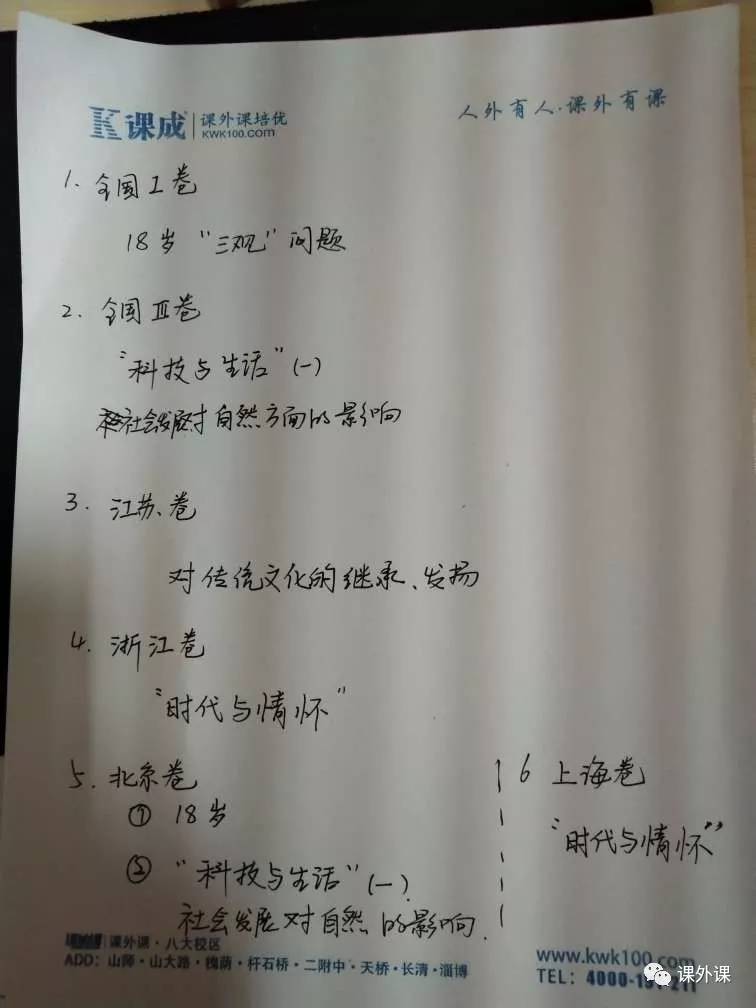 K课成 课外课培优
KWK100.com
人外有人·课外有课
1. 全国I卷
18岁 "三观" 问题
2. 全国Ⅲ卷
"科技与生活" (一)
社会发展对自然方面的影响
3. 江苏卷
对传统文化的继承、发扬
4. 浙江卷
"时代与情怀"
5. 北京卷
① 18岁
② "科技与生活" (一).
社会发展对自然的影响.
6 上海卷
"时代与情怀"
课外课·八大校区
ADD: 山师·山大路·槐荫·杆石桥·二附中·天桥·长清·淄博
www.kwk100.com
TEL: 4000-19
211
课外课